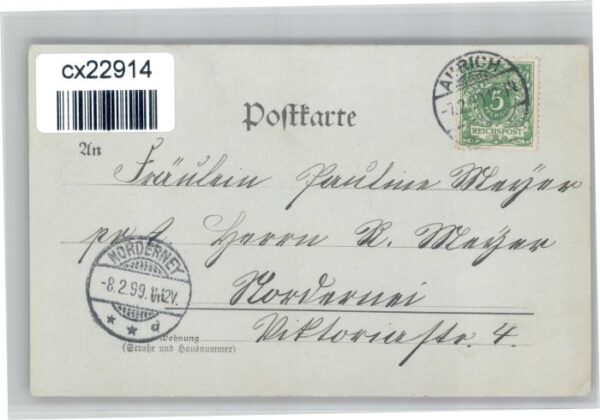 cx22914
Postkarte
AURICH
5
REICHSPOST
An
Fräulein Pauline Meyer
Herrn R. Meyer
NORDERNEY
-8.2.99. 11-12V.
* * d
Nordernei
Viktoriastr. 4.
Wohnung
(Straße und Hausnummer)